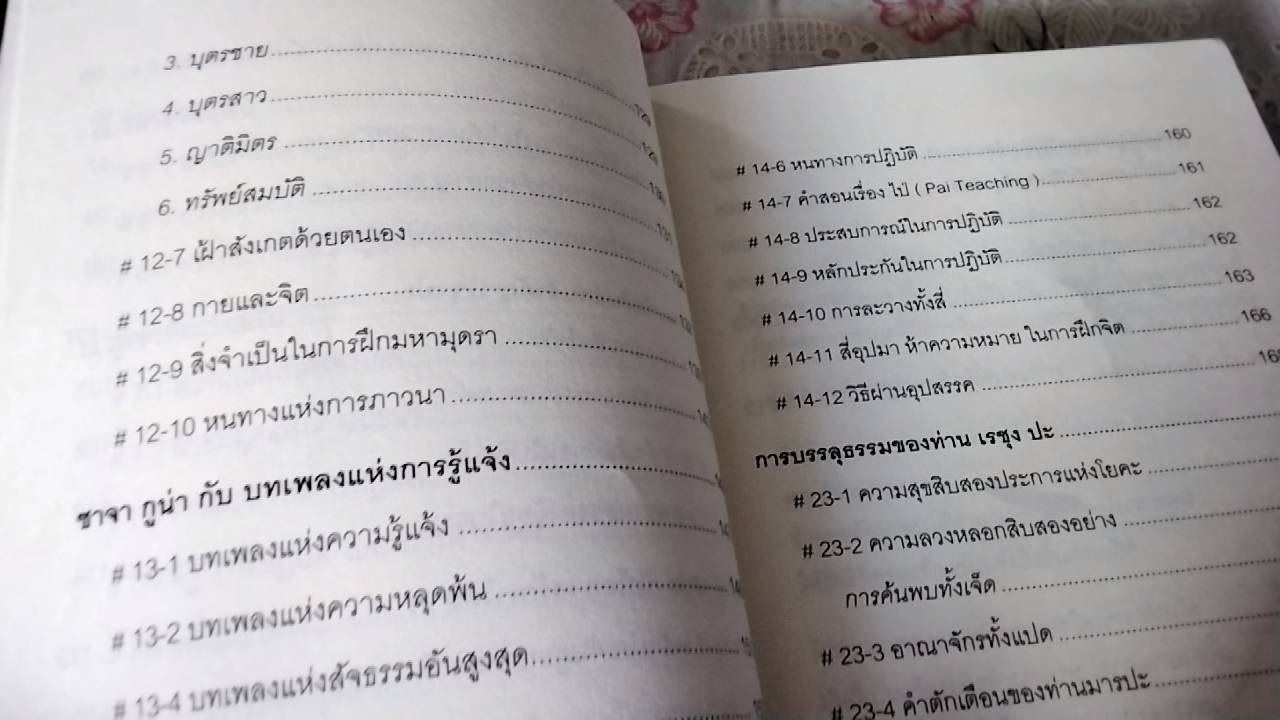 3. บุตรชาย
4. บุตรสาว 129
5. ญาติมิตร 129
6. ทรัพย์สมบัติ 130
# 12-7 เฝ้าสังเกตด้วยตนเอง 131
# 12-8 กายและจิต
# 12-9 สิ่งจำเป็นในการฝึกมหามุดรา
# 12-10 หนทางแห่งการภาวนา
ซาจา กูน่า กับ บทเพลงแห่งการรู้แจ้ง
# 13-1 บทเพลงแห่งความรู้แจ้ง
# 13-2 บทเพลงแห่งความหลุดพ้น
# 13-4 บทเพลงแห่งสัจธรรมอันสูงสุด
# 14-6 หนทางการปฏิบัติ 160
# 14-7 คำสอนเรื่อง ไป๋ ( Pai Teaching ) 161
# 14-8 ประสบการณ์ในการปฏิบัติ 162
# 14-9 หลักประกันในการปฏิบัติ 162
# 14-10 การละวางทั้งสี่ 163
# 14-11 สี่อุปมา ห้าความหมาย ในการฝึกจิต 166
# 14-12 วิธีผ่านอุปสรรค
การบรรลุธรรมของท่าน เรชุง ปะ
# 23-1 ความสุขสิบสองประการแห่งโยคะ
# 23-2 ความลวงหลอกสิบสองอย่าง
การค้นพบทั้งเจ็ด
# 23-3 อาณาจักรทั้งแปด
# 23-4 คำตักเตือนของท่านมารปะ